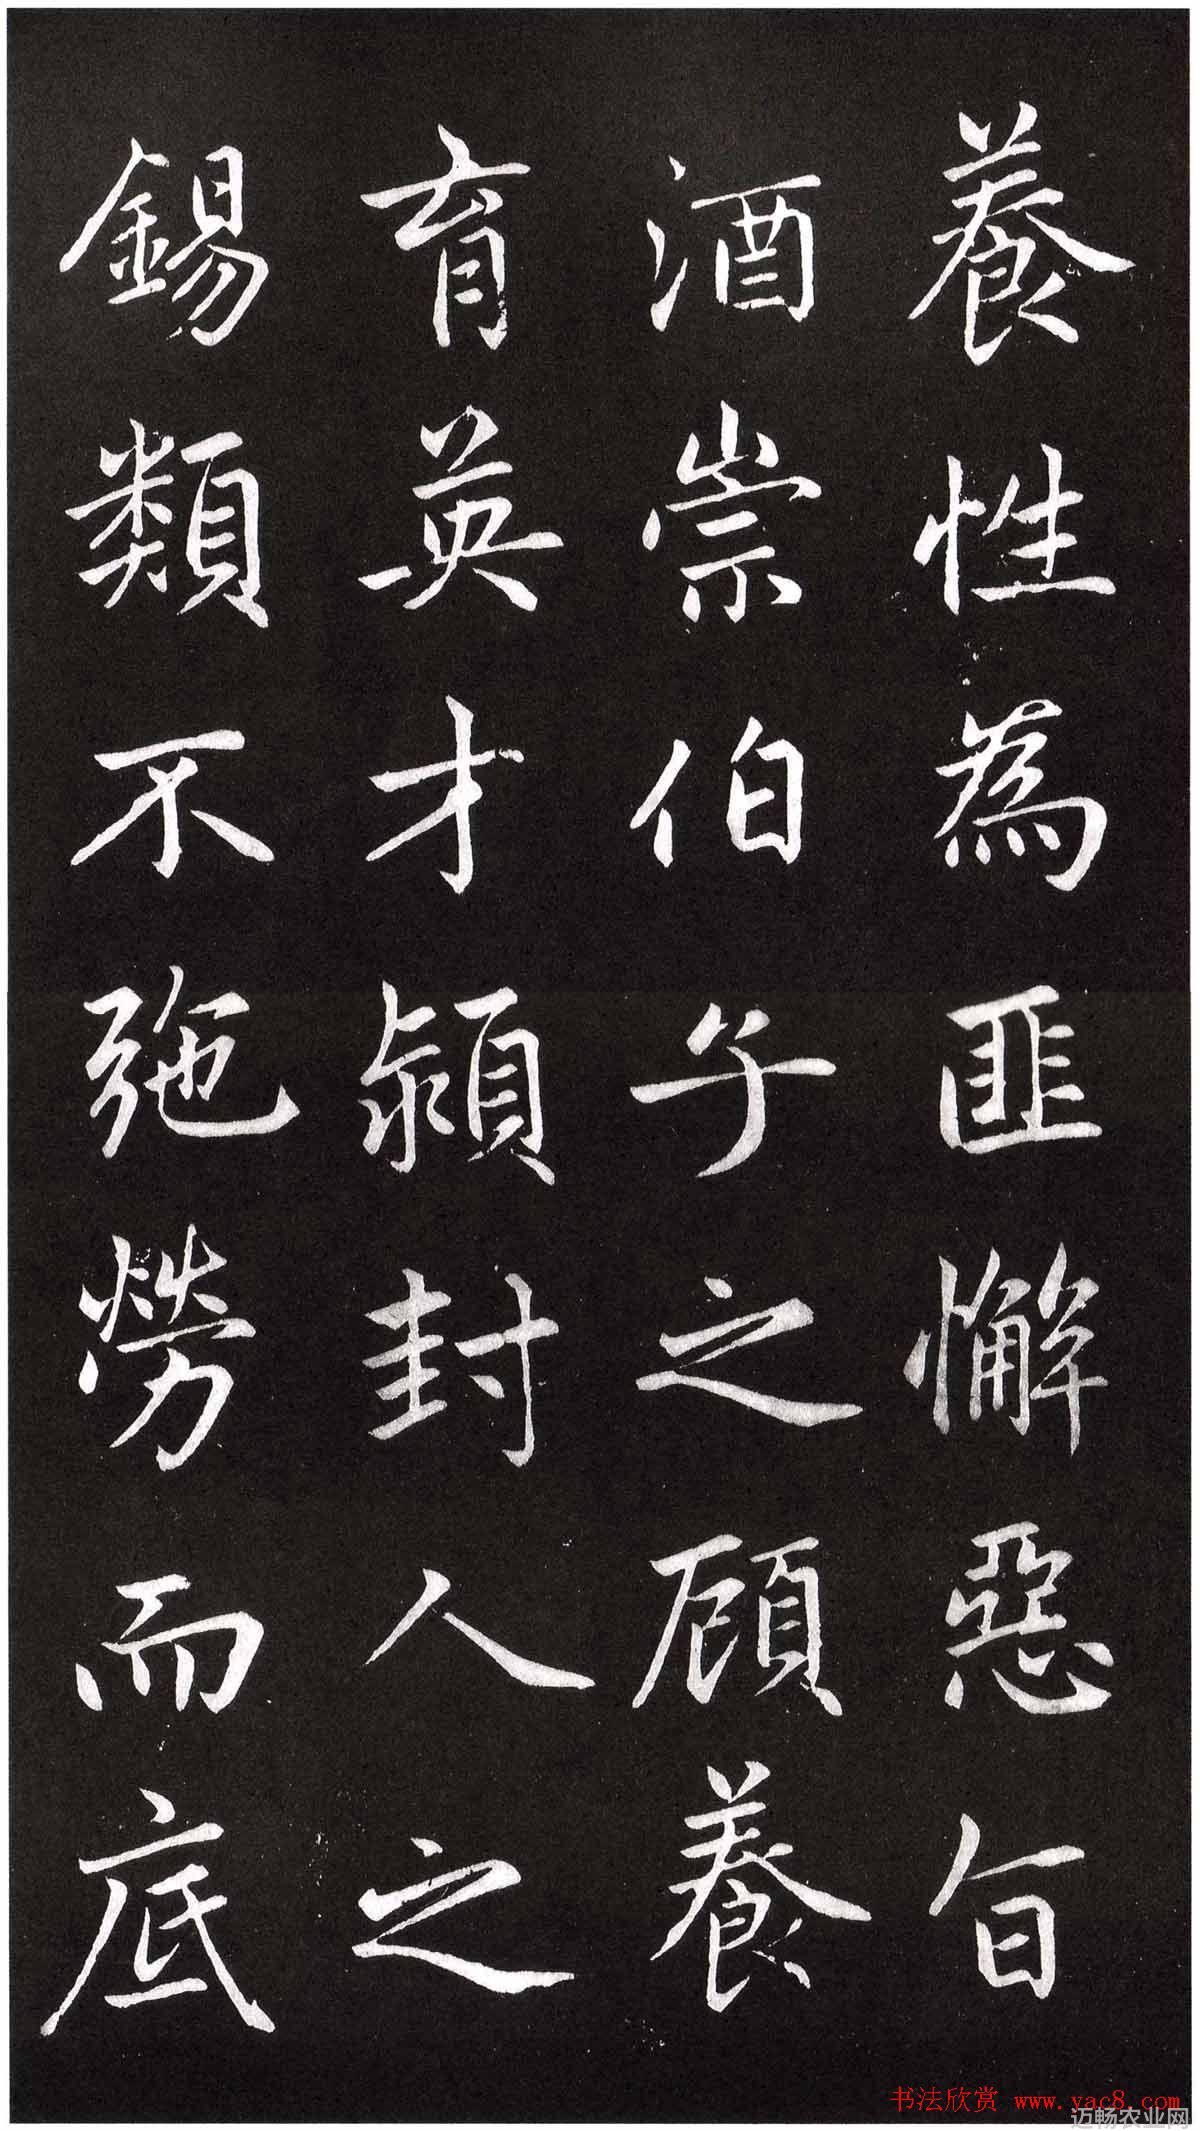 養性為匪懈惡旨
酒崇伯子之顧養
育英才潁封人之
錫類不弛勞而底
书法欣赏 www.yac8.com
迈畅农业网